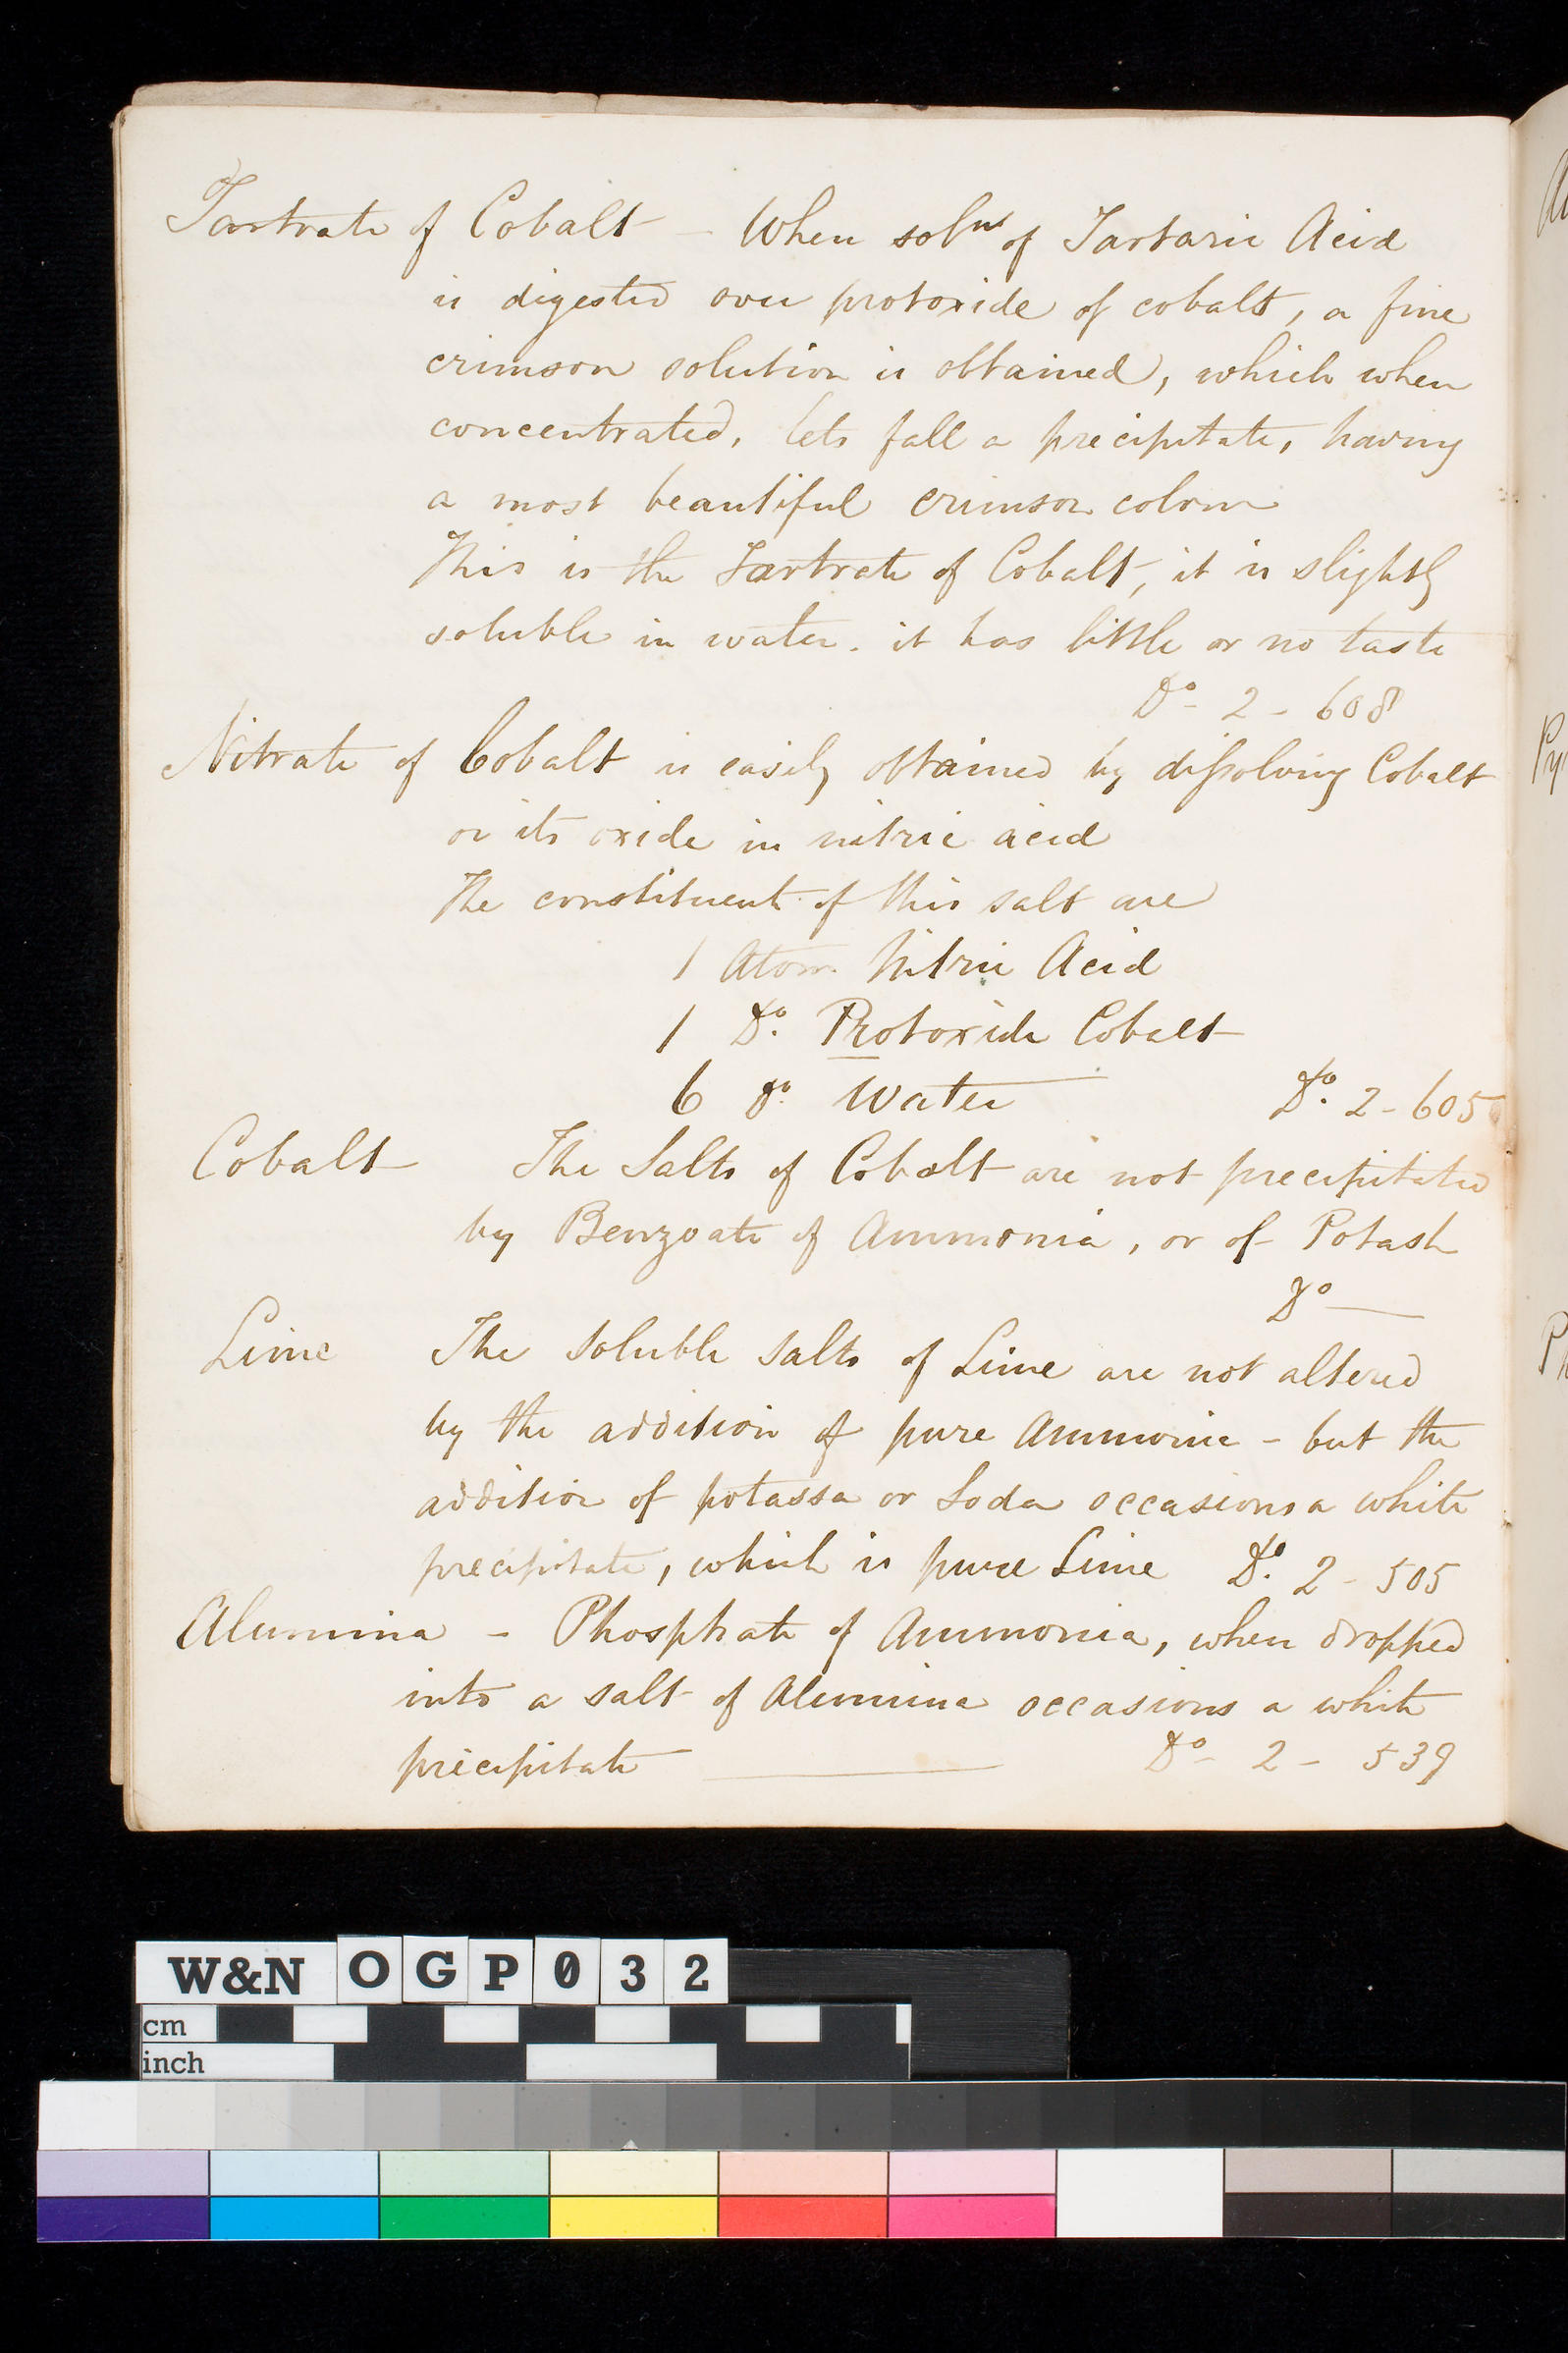 Tartrate of Cobalt – When solns of Tartaric Acid
is digested over protoxide of cobalt, a fine
crimson solution is obtained, which when
concentrated, lets fall a precipitate, having
a most beautiful crimson colour
This is the Tartrate of Cobalt, it is slightly
soluble in water. it has little or no taste
Do - 2 - 608
Nitrate of Cobalt is easily obtained by dissolving Cobalt
or its oxide in nitric acid
The constituent of this salt are
1 Atom Nitric Acid
1 Do. Protoxide Cobalt
6 do. Water Do. 2 - 605
Cobalt The Salts of Cobalt are not precipitated
by Benzoate of Ammonia, or of Potash
Do —
Lime The Soluble Salts of Lime are not altered
by the addition of pure Ammonia - but the
addition of potassa or Soda occasions a white
precipitate, which is pure Lime Do. 2 - 505
Alumina - Phosphate of Ammonia, when dropped
into a salt of Alumina occasions a white
precipitate — Do - 2 - 539
W&N OGP032
cm
inch